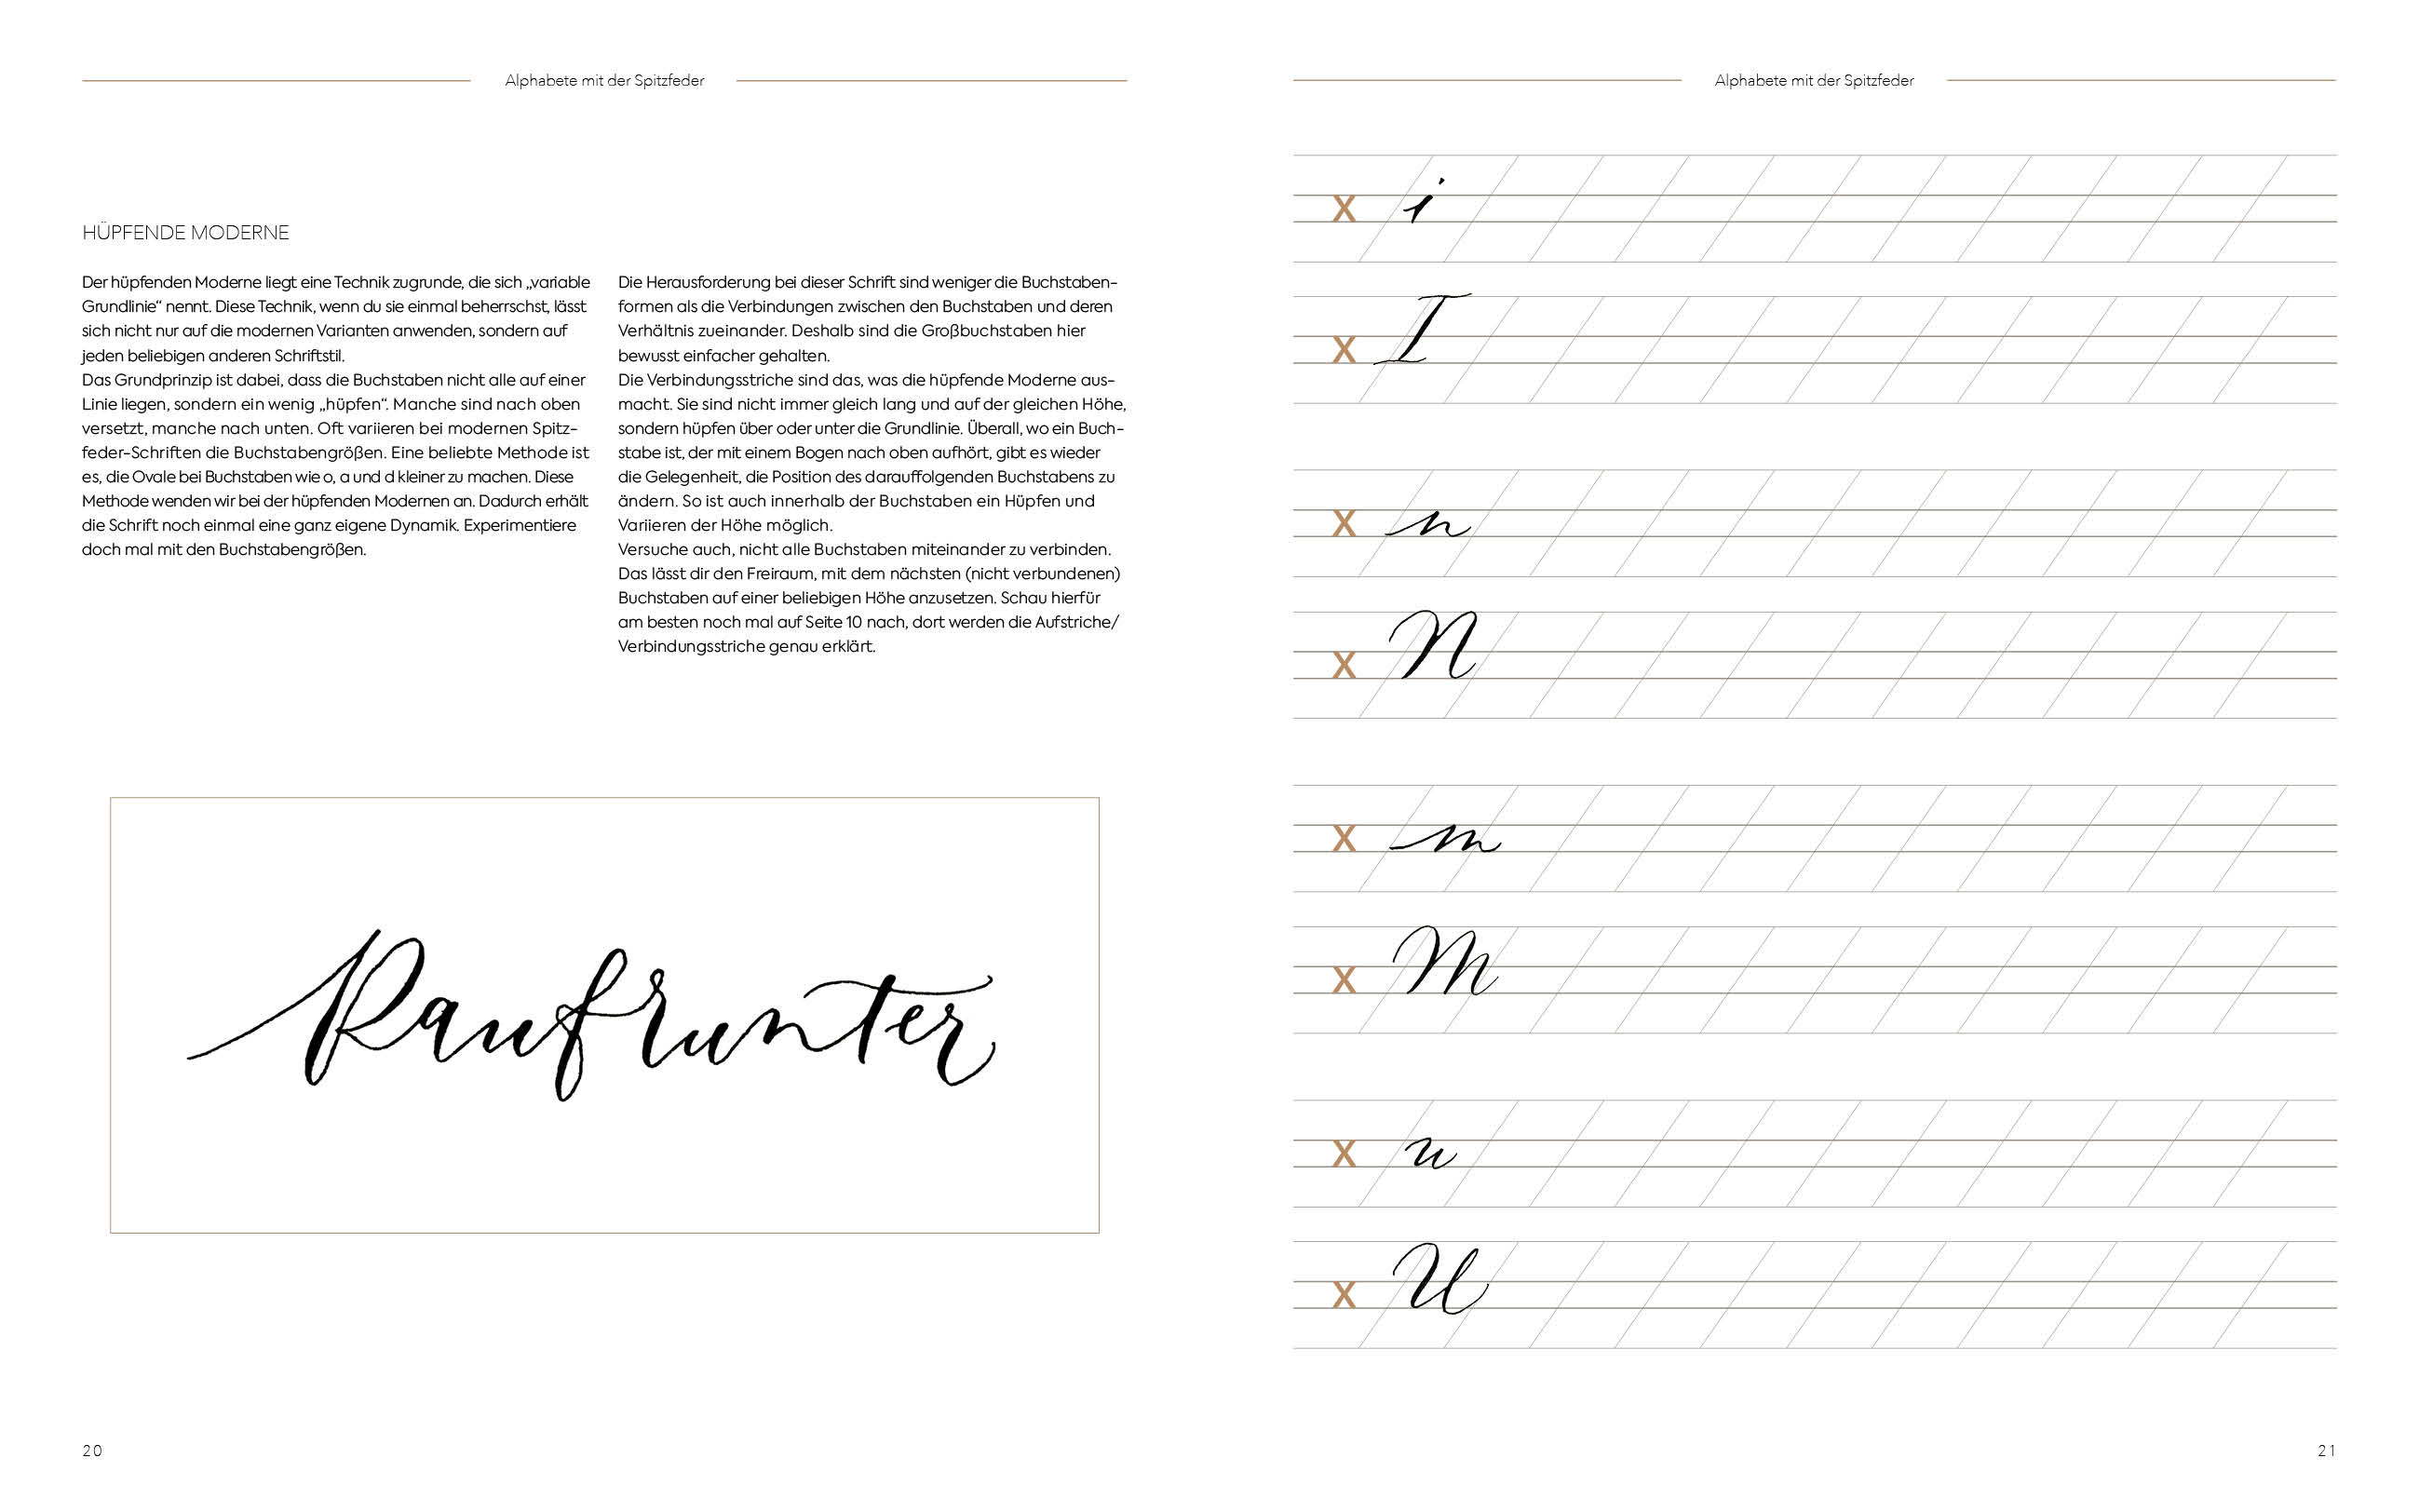 Alphabete mit der Spitzfeder
HÜPFENDE MODERNE
Der hüpfenden Moderne liegt eine Technik zugrunde, die sich „variable
Grundlinie“ nennt. Diese Technik, wenn du sie einmal beherrschst, lässt
sich nicht nur auf die modernen Varianten anwenden, sondern auf
jeden beliebigen anderen Schriftstil.
Das Grundprinzip ist dabei, dass die Buchstaben nicht alle auf einer
Linie liegen, sondern ein wenig „hüpfen“. Manche sind nach oben
versetzt, manche nach unten. Oft variieren bei modernen Spitz-
feder-Schriften die Buchstabengrößen. Eine beliebte Methode ist
es, die Ovale bei Buchstaben wie o, a und d kleiner zu machen. Diese
Methode wenden wir bei der hüpfenden Modernen an. Dadurch erhält
die Schrift noch einmal eine ganz eigene Dynamik. Experimentiere
doch mal mit den Buchstabengrößen.
Die Herausforderung bei dieser Schrift sind weniger die Buchstaben-
formen als die Verbindungen zwischen den Buchstaben und deren
Verhältnis zueinander. Deshalb sind die Großbuchstaben hier
bewusst einfacher gehalten.
Die Verbindungsstriche sind das, was die hüpfende Moderne aus-
macht. Sie sind nicht immer gleich lang und auf der gleichen Höhe,
sondern hüpfen über oder unter die Grundlinie. Überall, wo ein Buch-
stabe ist, der mit einem Bogen nach oben aufhört, gibt es wieder
die Gelegenheit, die Position des darauffolgenden Buchstabens zu
ändern. So ist auch innerhalb der Buchstaben ein Hüpfen und
Variieren der Höhe möglich.
Versuche auch, nicht alle Buchstaben miteinander zu verbinden.
Das lässt dir den Freiraum, mit dem nächsten (nicht verbundenen)
Buchstaben auf einer beliebigen Höhe anzusetzen. Schau hierfür
am besten noch mal auf Seite 10 nach, dort werden die Aufstriche/
Verbindungsstriche genau erklärt.
Raufrunter
20
Alphabete mit der Spitzfeder
x i
x I
x n
x N
x m
x M
x u
x U
21